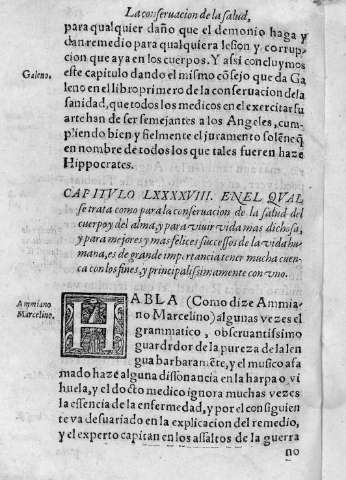 La conseruacion de la salud,
para qualquier daño que el demonio haga y
dan remedio para qualquiera lesion y corrup-
cion que aya en los cuerpos. Y assi concluymos
Galeno.
este capitulo dando el mismo cõsejo que da Ga
leno en el libro primero de la conseruacion de la
sanidad, que todos los medicos en el exercitar su
arte han de ser semejantes a los Angeles, cum-
pliendo bien y fielmente el juramento solẽne q̃
en nombre de todos los que tales fueren haze
Hippocrates.
CAPITVLO LXXXXVIII. EN EL QVAL
se trata como para la conseruacion de la salud del
cuerpo y del alma, y para viuir vida mas dichosa,
y para mejores y mas felices successos de la vida hu-
mana, es de grande importancia tener mucha cuen-
ca con los fines, y principalissimamente con vno.
Ammiano
Marcelino.
HABLA (Como dize Ammia-
no Marcelino) algunas vezes el
grammatico, obseruantissimo
guardrdor de la pureza de la len
gua barbaramẽte, y el musico afa
mado haze alguna dissonancia en la harpa o vi
huela, y el docto medico ignora muchas vezes
la essencia de la enfermedad, y por el consiguien
te va desuariado en la explicacion del remedio,
y el experto capitan en los assaltos de la guerra
no